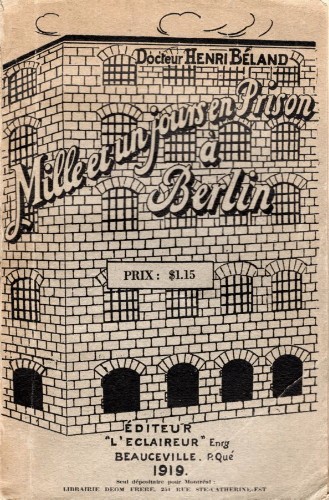 Docteur HENRI BÉLAND
Mille et un jours en Prison
à
Berlin
PRIX : $1.15
ÉDITEUR
"L'ECLAIREUR" Enrg
BEAUCEVILLE. P.Qué
1919.
Seul dépositaire pour Montréal :
LIBRAIRIE DEOM FRERE, 251 RUE STE-CATHERINE-EST